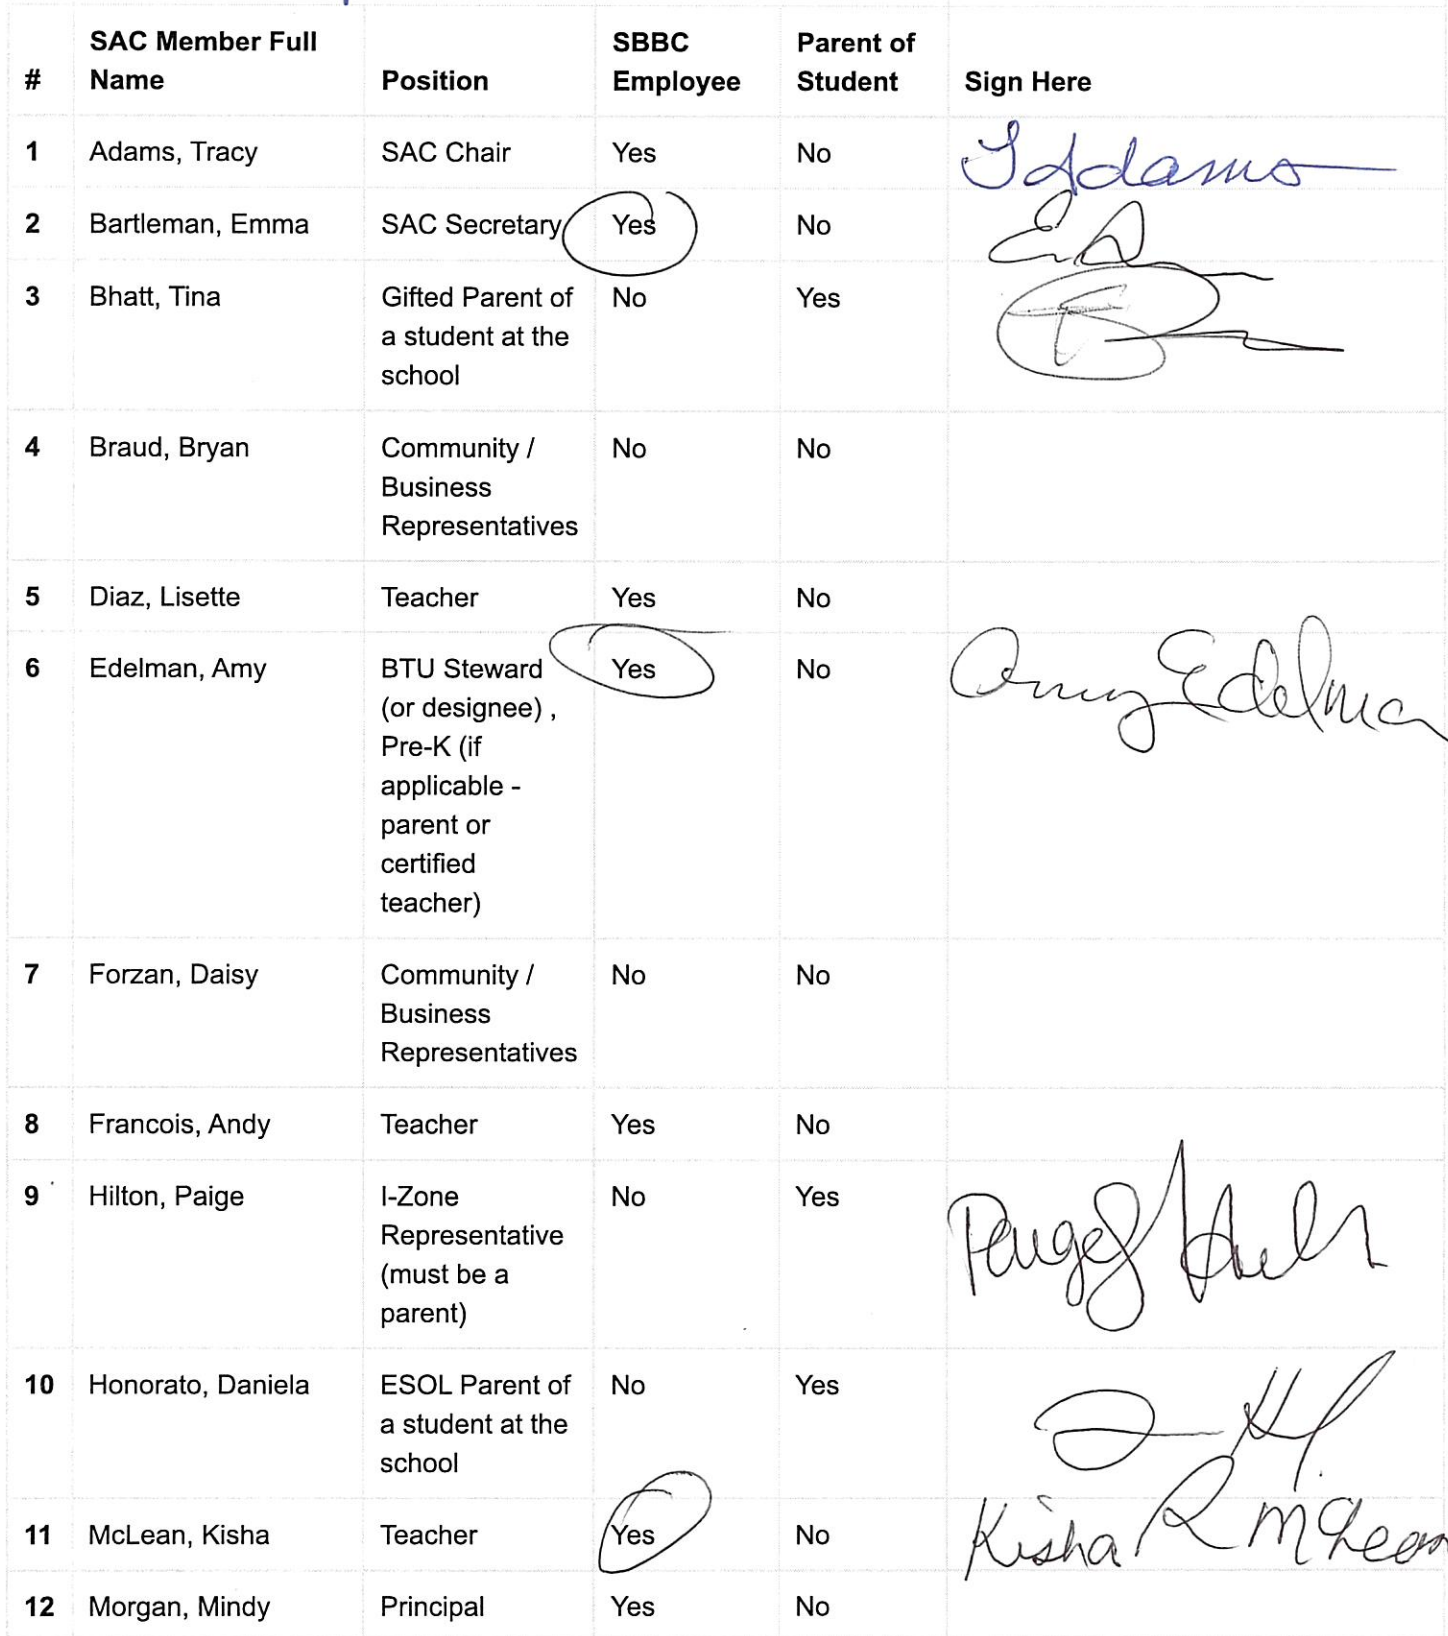 # SAC Member Full Name Position SBBC Employee Parent of Student Sign Here
1 Adams, Tracy SAC Chair Yes No T Adams
2 Bartleman, Emma SAC Secretary Yes No
3 Bhatt, Tina Gifted Parent of Yes No
a student at the
school
4 Braud, Bryan Community / No No
Business
Representatives
5 Diaz, Lisette Teacher Yes No
6 Edelman, Amy BTU Steward Yes No Amy Edelman
(or designee) ,
Pre-K (if
applicable -
parent or
certified
teacher)
7 Forzan, Daisy Community / No No
Business
Representatives
8 Francois, Andy Teacher Yes No
9 Hilton, Paige I-Zone No Yes Paige
Representative
(must be a
parent)
10 Honorato, Daniela ESOL Parent of No Yes
a student at the
school
11 McLean, Kisha Teacher Yes No Kisha R McLean
12 Morgan, Mindy Principal Yes No